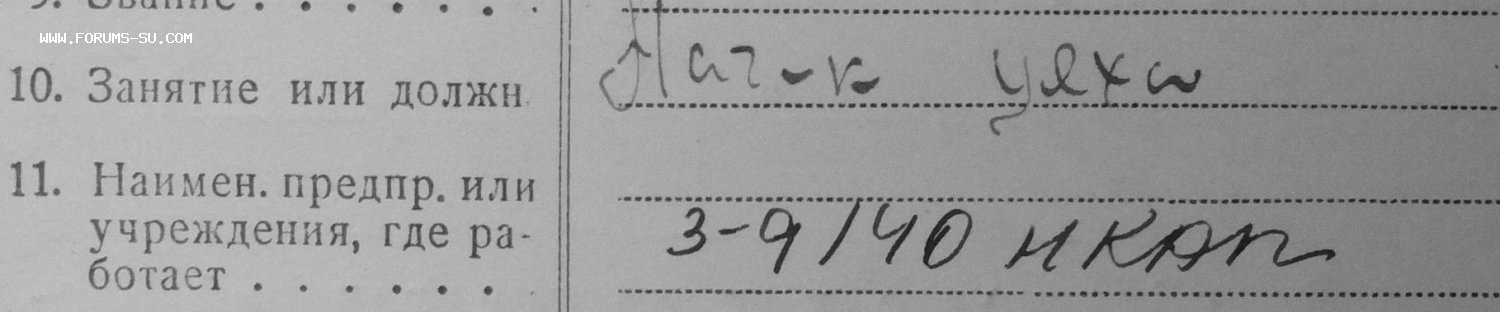 9. Звание . . . . . . .
WWW.FORUMS-SU.COM
10. Занятие или должн. Нач-к цеха
11. Наимен. предпр. или
учреждения, где ра- З-д 140 НКАП
ботает . . . . . .